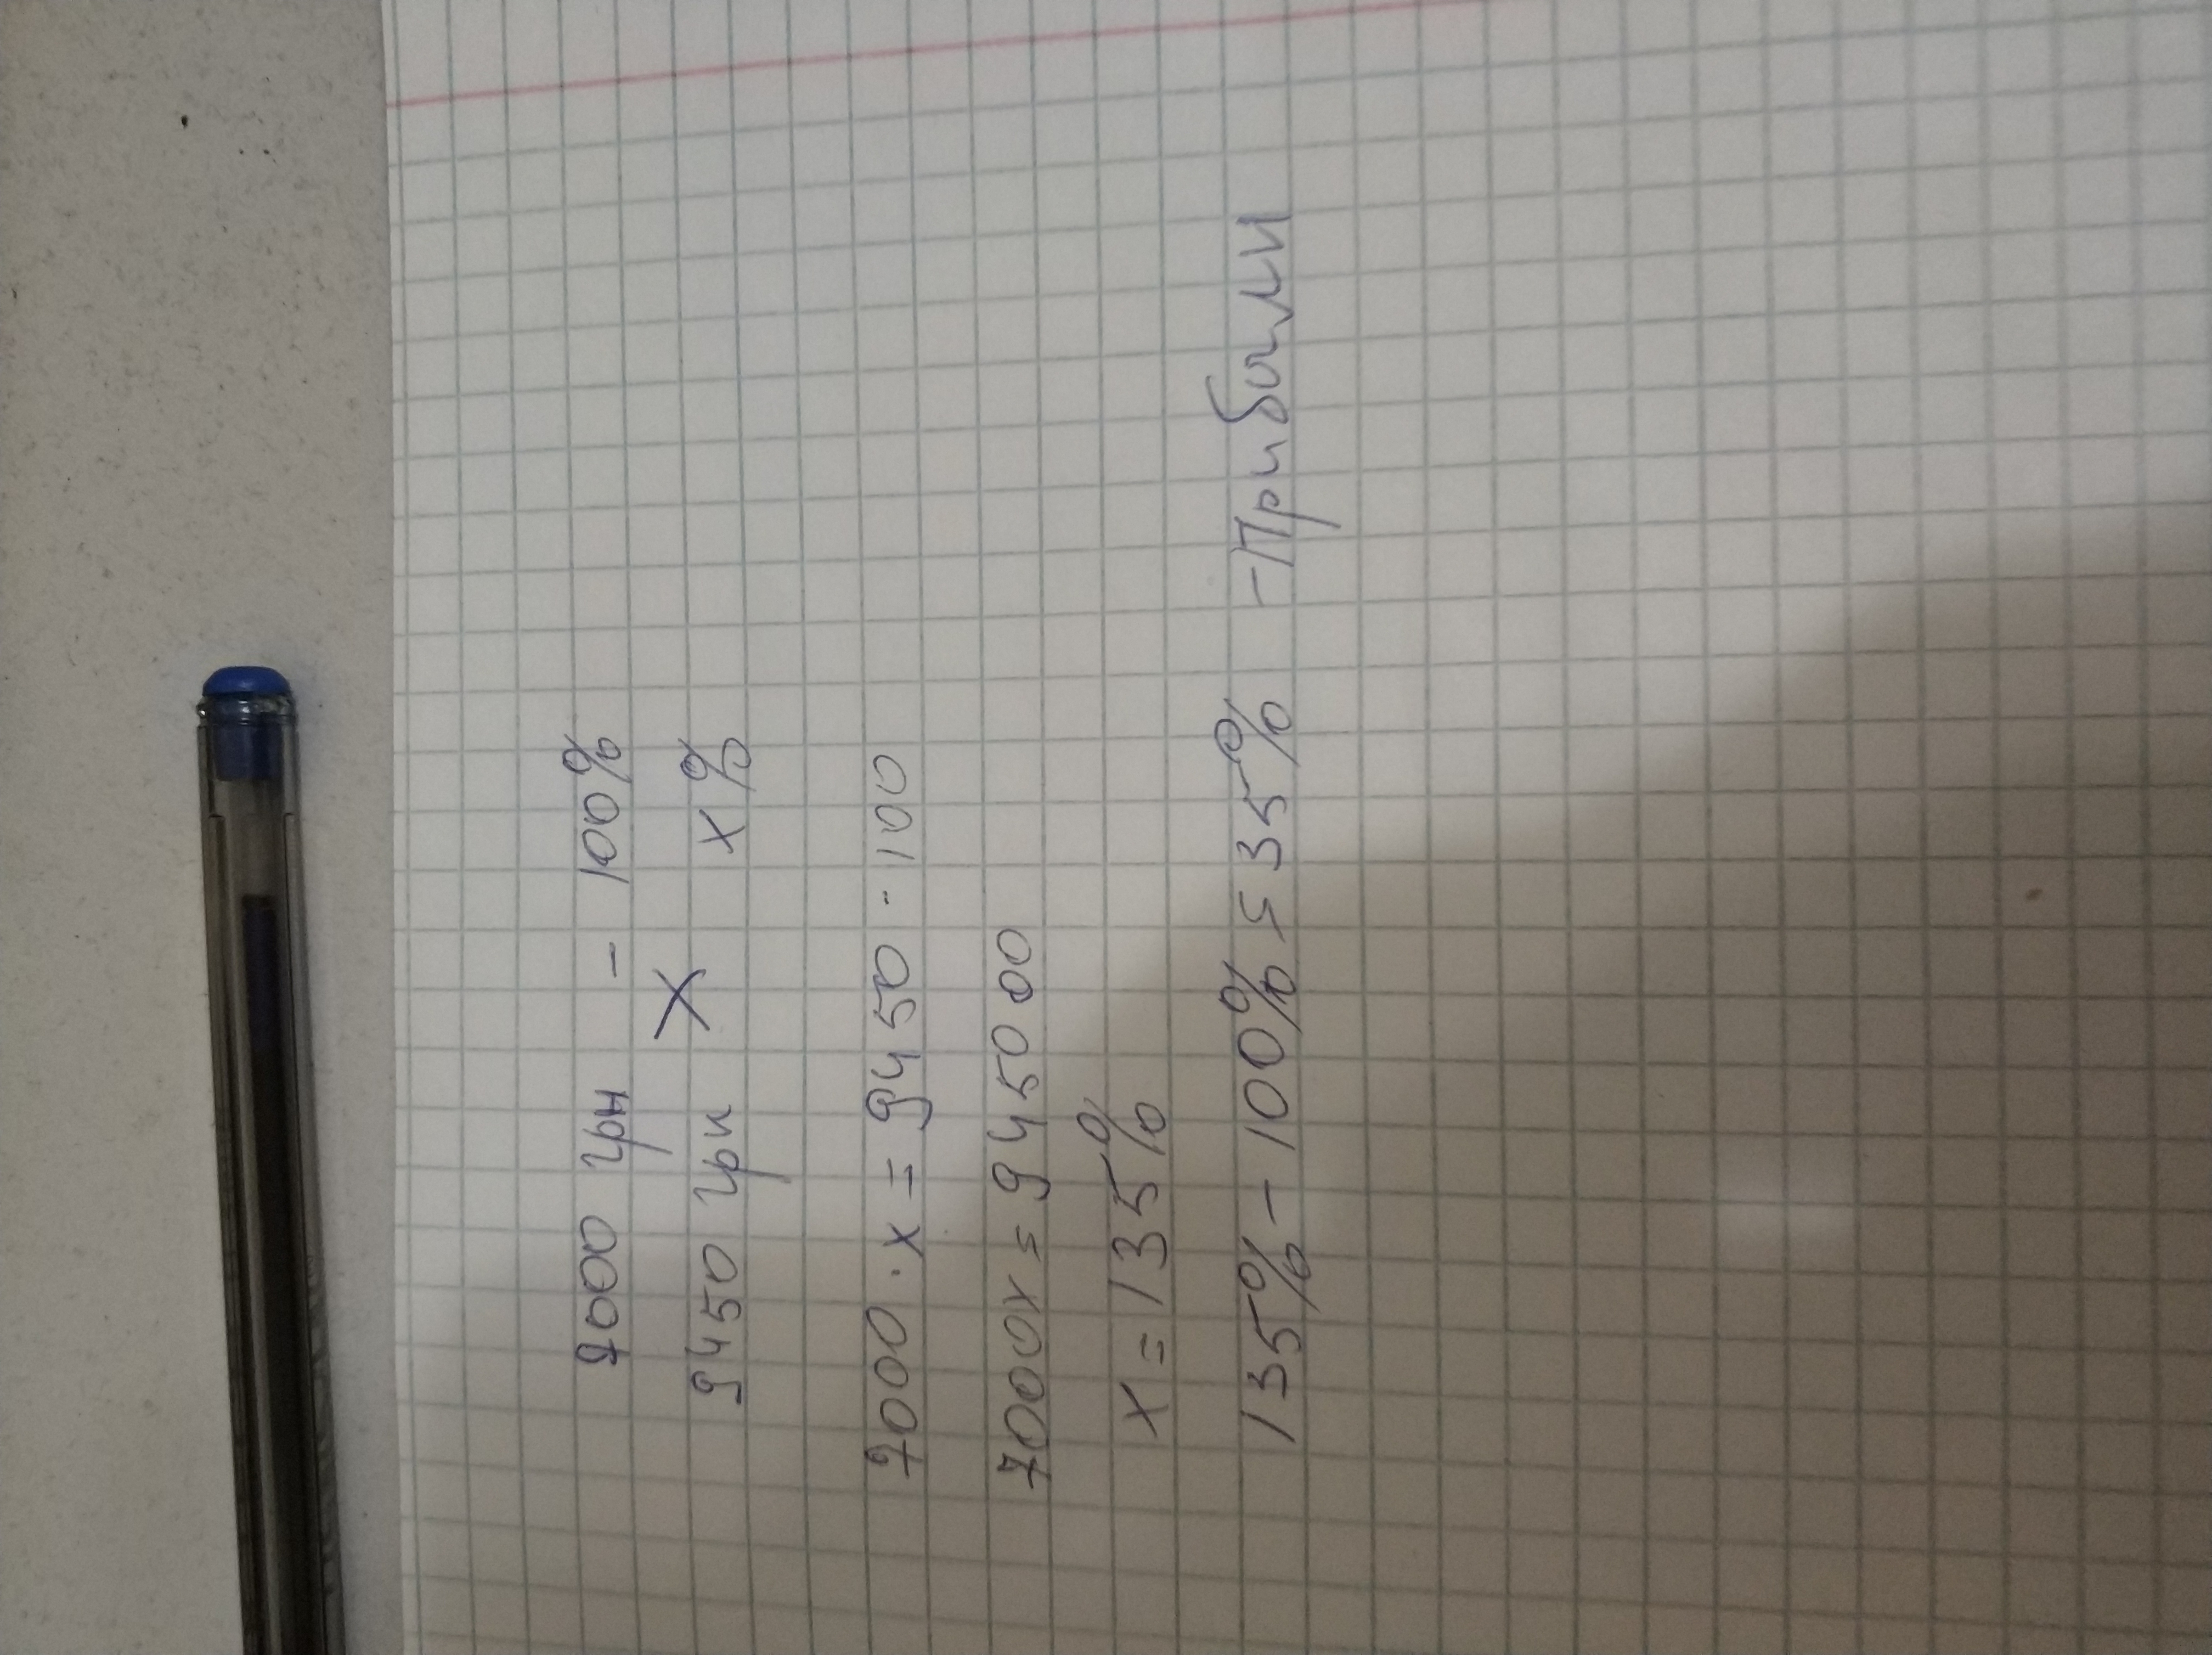 7000 грн - 100%
X
9450 грн x%
7000 · x = 9450 · 100
7000x = 945000
x = 135%
135% - 100% = 35% - Прибыли